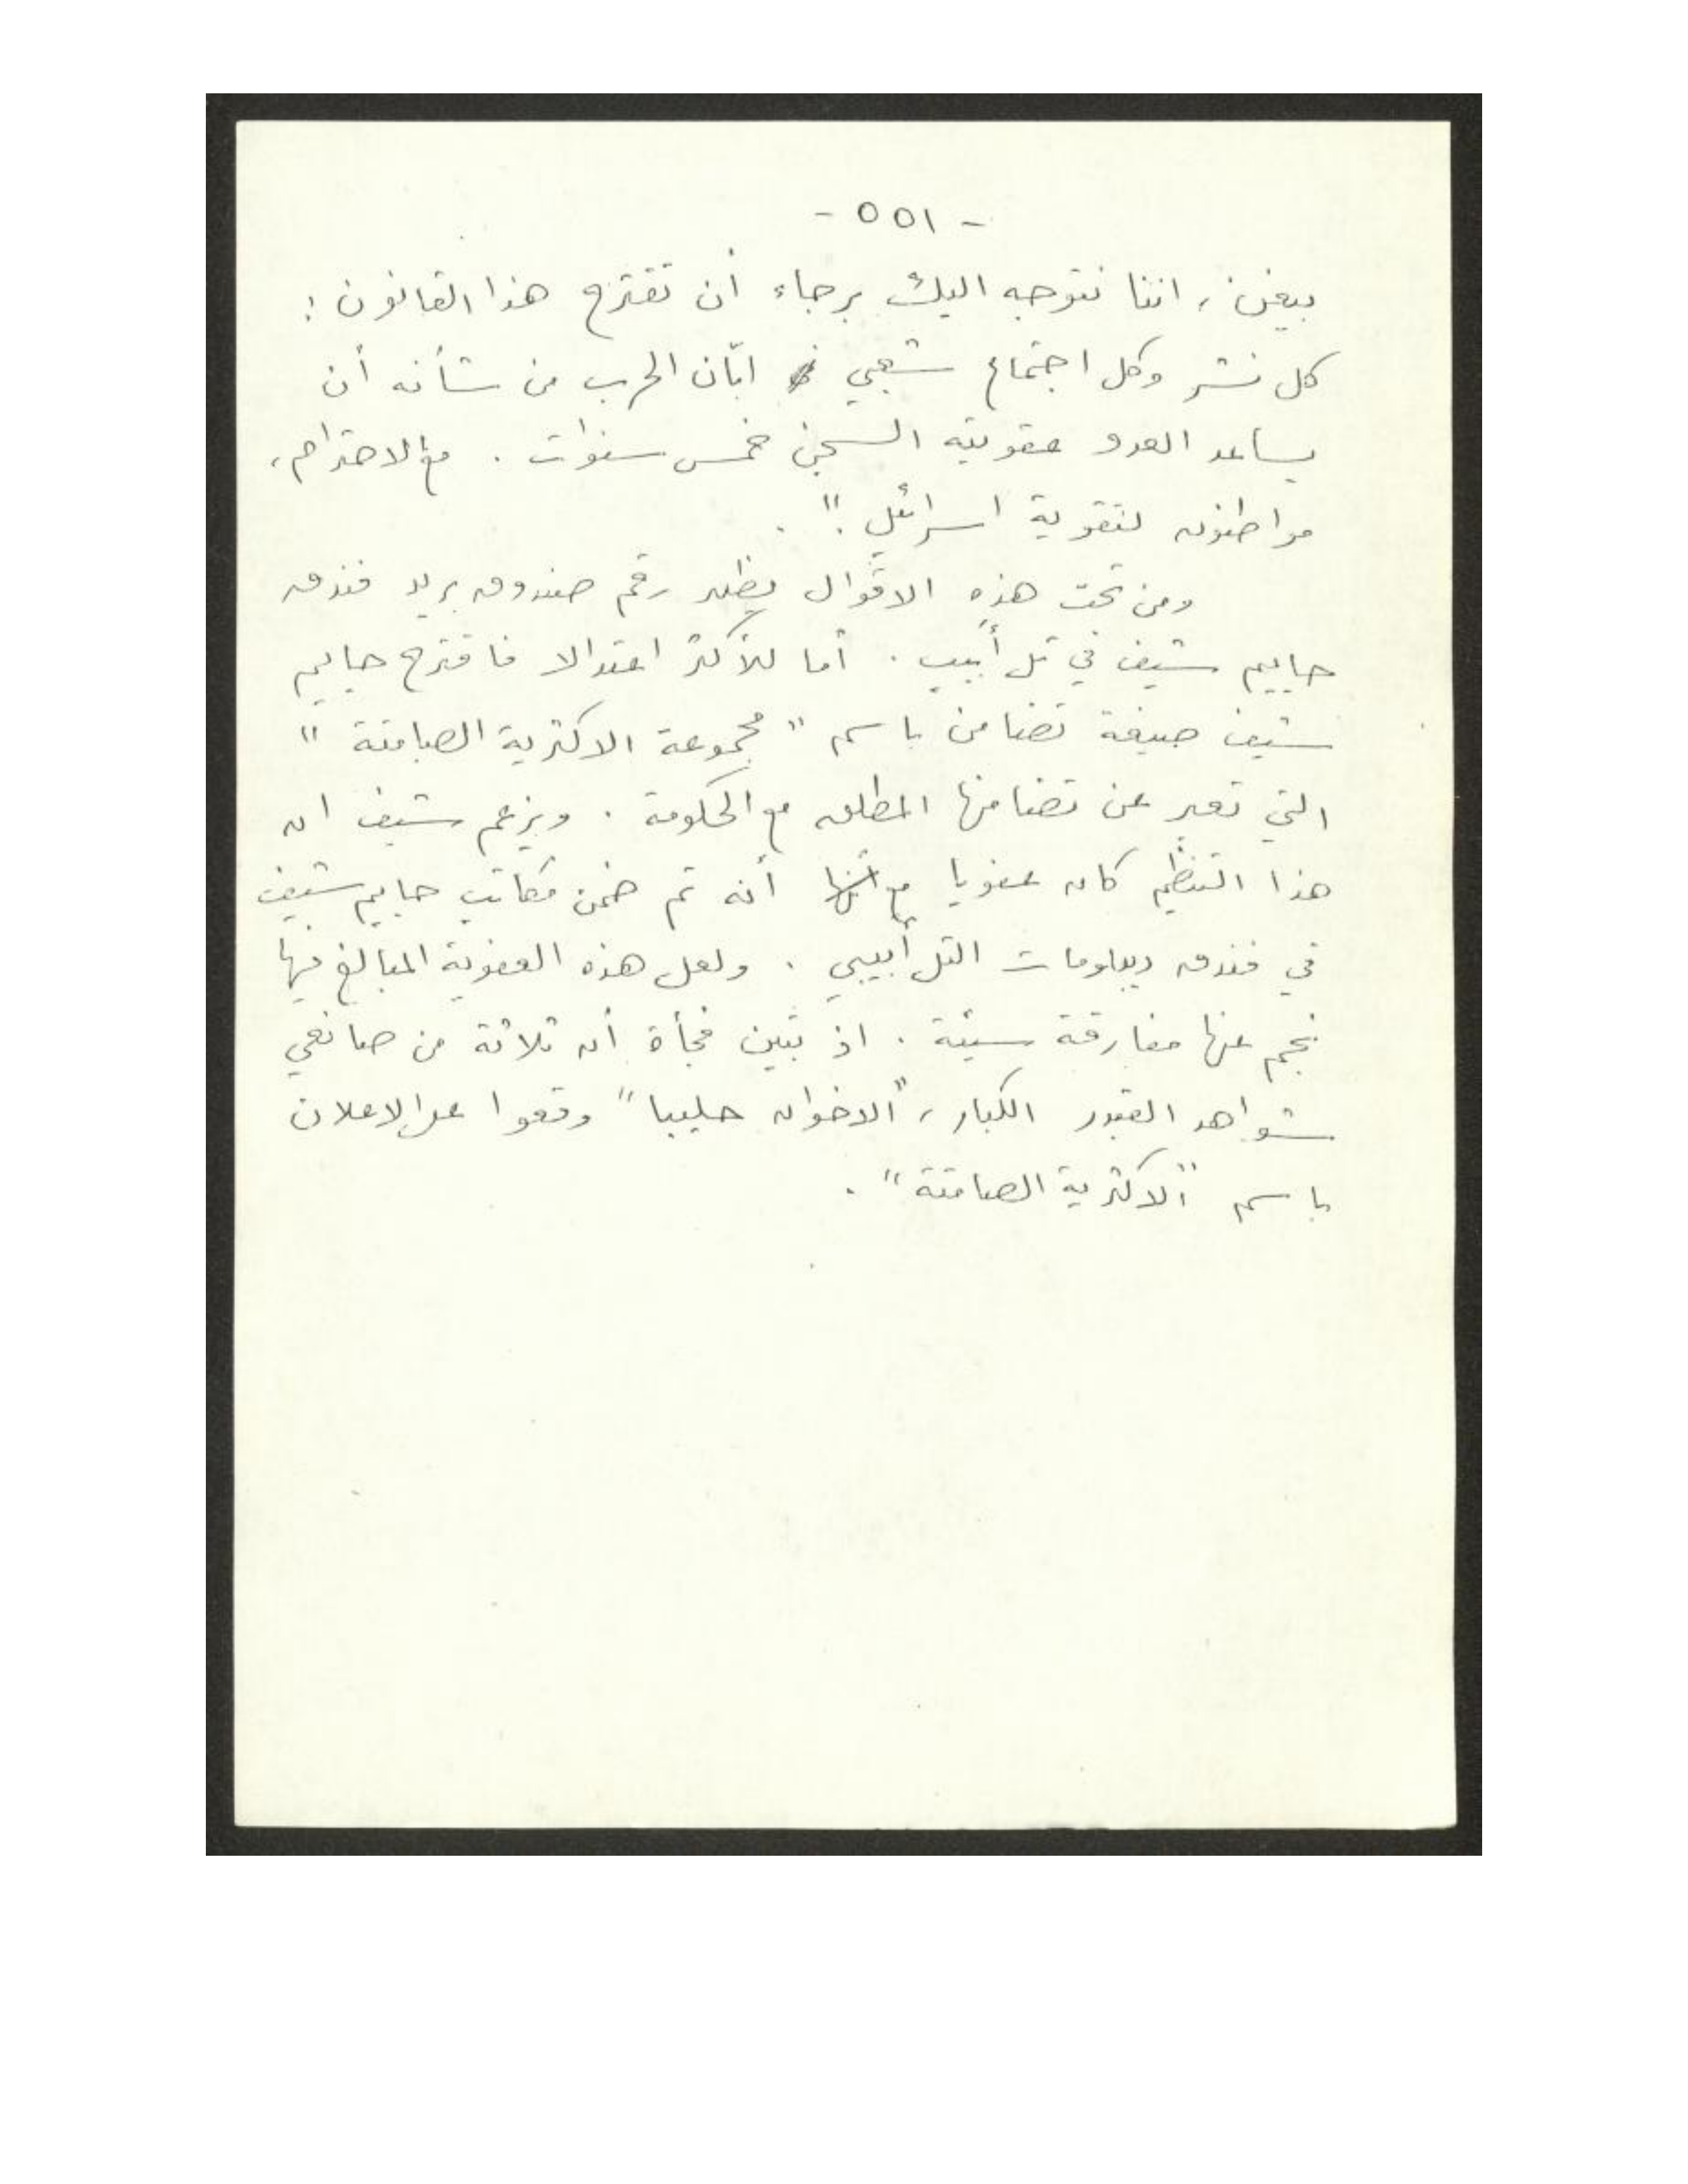 - ٥٥١ -
بيغن، اننا نتوجه اليك برجاء أن تقترح هذا القانون:
كل نشر وكل اجتماع شعبي ابّان الحرب من شأنه أن
يساعد العدو عقوبته السجن خمس سنوات. مع الاحترام،
مواطنون لتقوية اسرائيل".
ومن تحت هذه الاقوال يظهر رقم صندوق بريد فندق
حاييم شيف في تل أبيب. أما للأكثر اعتدالا فاقترح حاييم
شيف صيغة تضامن باسم "مجموعة الاكثرية الصامتة"
التي تعبر عن تضامنها المطلق مع الحكومة. ويزعم شيف ان
هذا التنظيم كان عفويا مع أنه تم ضمن مكاتب حاييم شيف
في فندق ديبلومات التل أبيبي. ولعل هذه العفوية المبالغ فيها
نجم عنها مفارقة سيئة. اذ تبين فجأة أن ثلاثة من صانعي
شواهد القبور الكبار، "الاخوان حليبا" وقعوا على الاعلان
باسم "الاكثرية الصامتة".